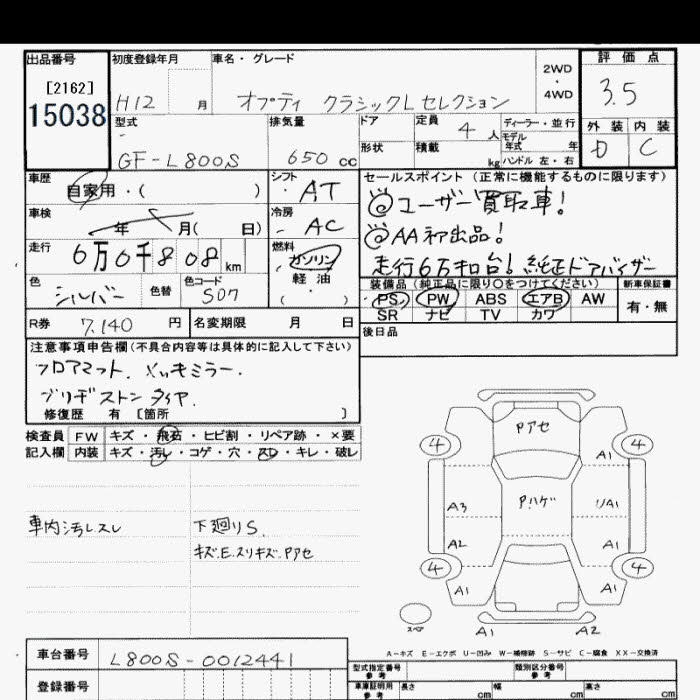 出品番号 初度登録年月 車名・グレード 2WD・4WD 評価点
[2162]
15038 H12 月 オプティ クラシックLセレクション 3.5
型式 排気量 ドア 定員 4 人 ディーラー・並行 外装 内装
形状 積載 kg モデル年式 年
GF-L800S 650 cc ハンドル 左・右 D C
車歴 シフト セールスポイント(正常に機能するものに限ります)
自家用・( ) AT ◎ユーザー買取車!
車検 冷房
年 月( 日) AC ◎AA初出品!
走行 燃料
6万0千808 km ガソリン 走行6万キロ台!純正ドアバイザー
色 色替 色コード 軽油 装備品(純正品に限り○をつけてください) 新車保証書
シルバー S07 ( ) PS PW ABS エアB AW 有・無
SR ナビ TV カワ
R券 7,140 円 名変期限 月 日 後日品
注意事項申告欄(不具合内容等は具体的に記入して下さい)
フロアマット. メッキミラー.
ブリヂストンタイヤ.
修復歴 有 [箇所 ]
検査員 FW キズ・飛石・ヒビ割・リペア跡・×要
記入欄 内装 キズ・汚レ・コゲ・穴・スレ・キレ・破レ
Pアセ
4 4
A1
A3 Pハゲ A1
車内汚レスレ 下廻りS.
A2 A1
キズ.E.スリキズ.Pアセ
4 4
A1 A1
スペア A1 A2
A-キズ E-エクボ U-凹み W-補修跡 S-サビ C-腐食 XX-交換済
車台番号 L800S-0012441
型式指定番号 参考 類別区分番号 参考
登録番号 車庫証明用 参考 長さ cm 幅 cm 高さ cm